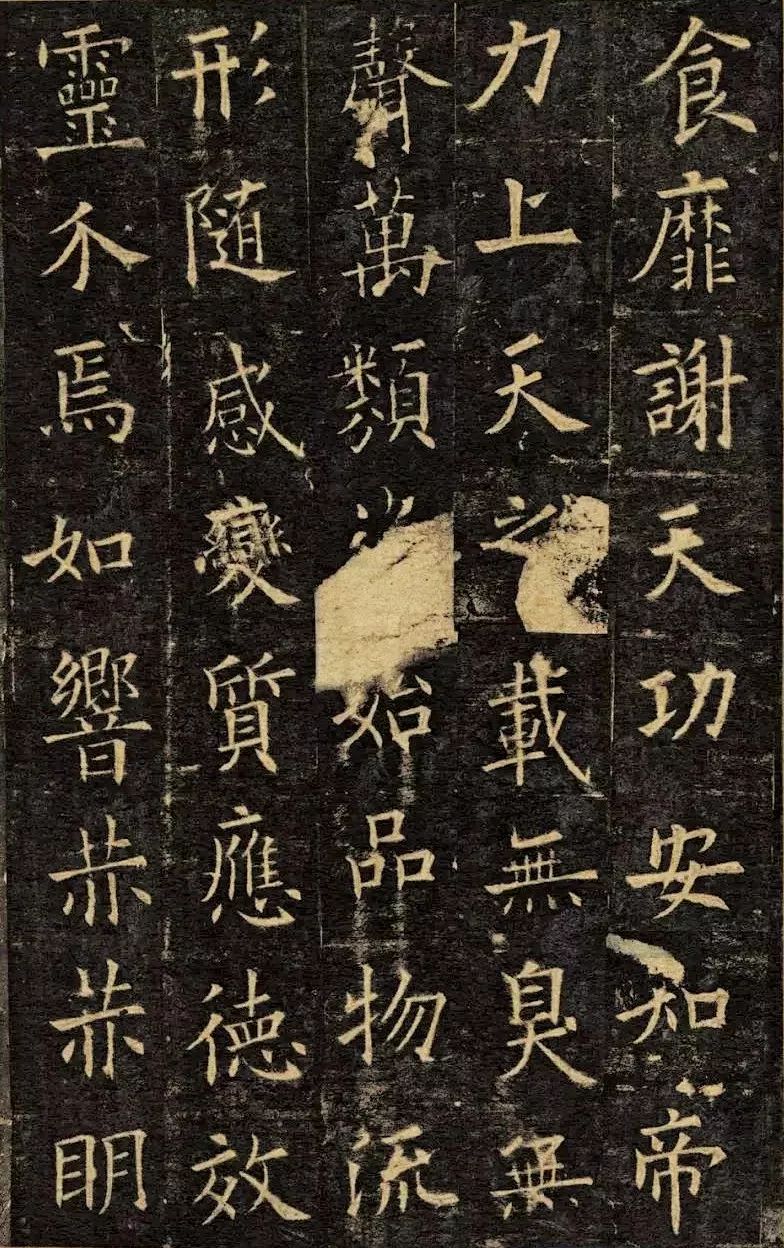 食靡謝天功安知帝
力上天之載無臭無
聲萬類始品物流
形隨感變質應德效
靈介焉如響赫赫明